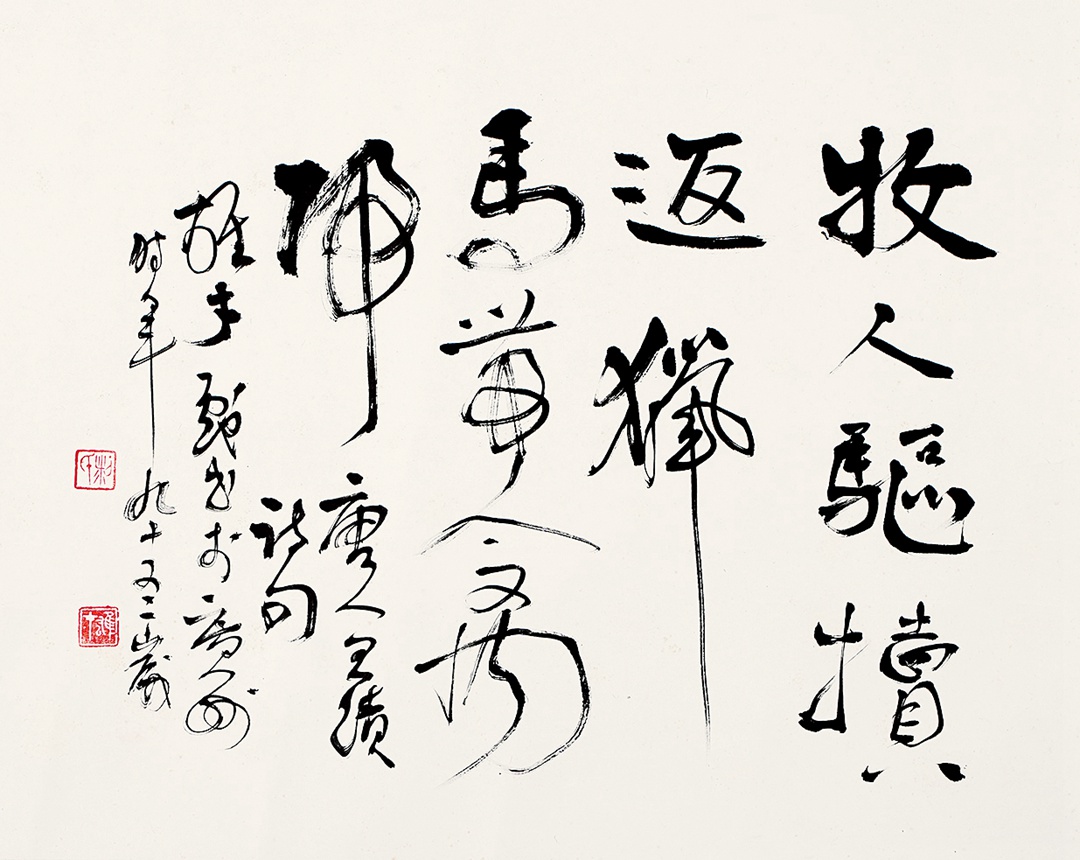 牧人驅犢
返獵
馬帶禽
歸
唐人王績
詩句
雄才戲書於廣州
時年九十又二歲